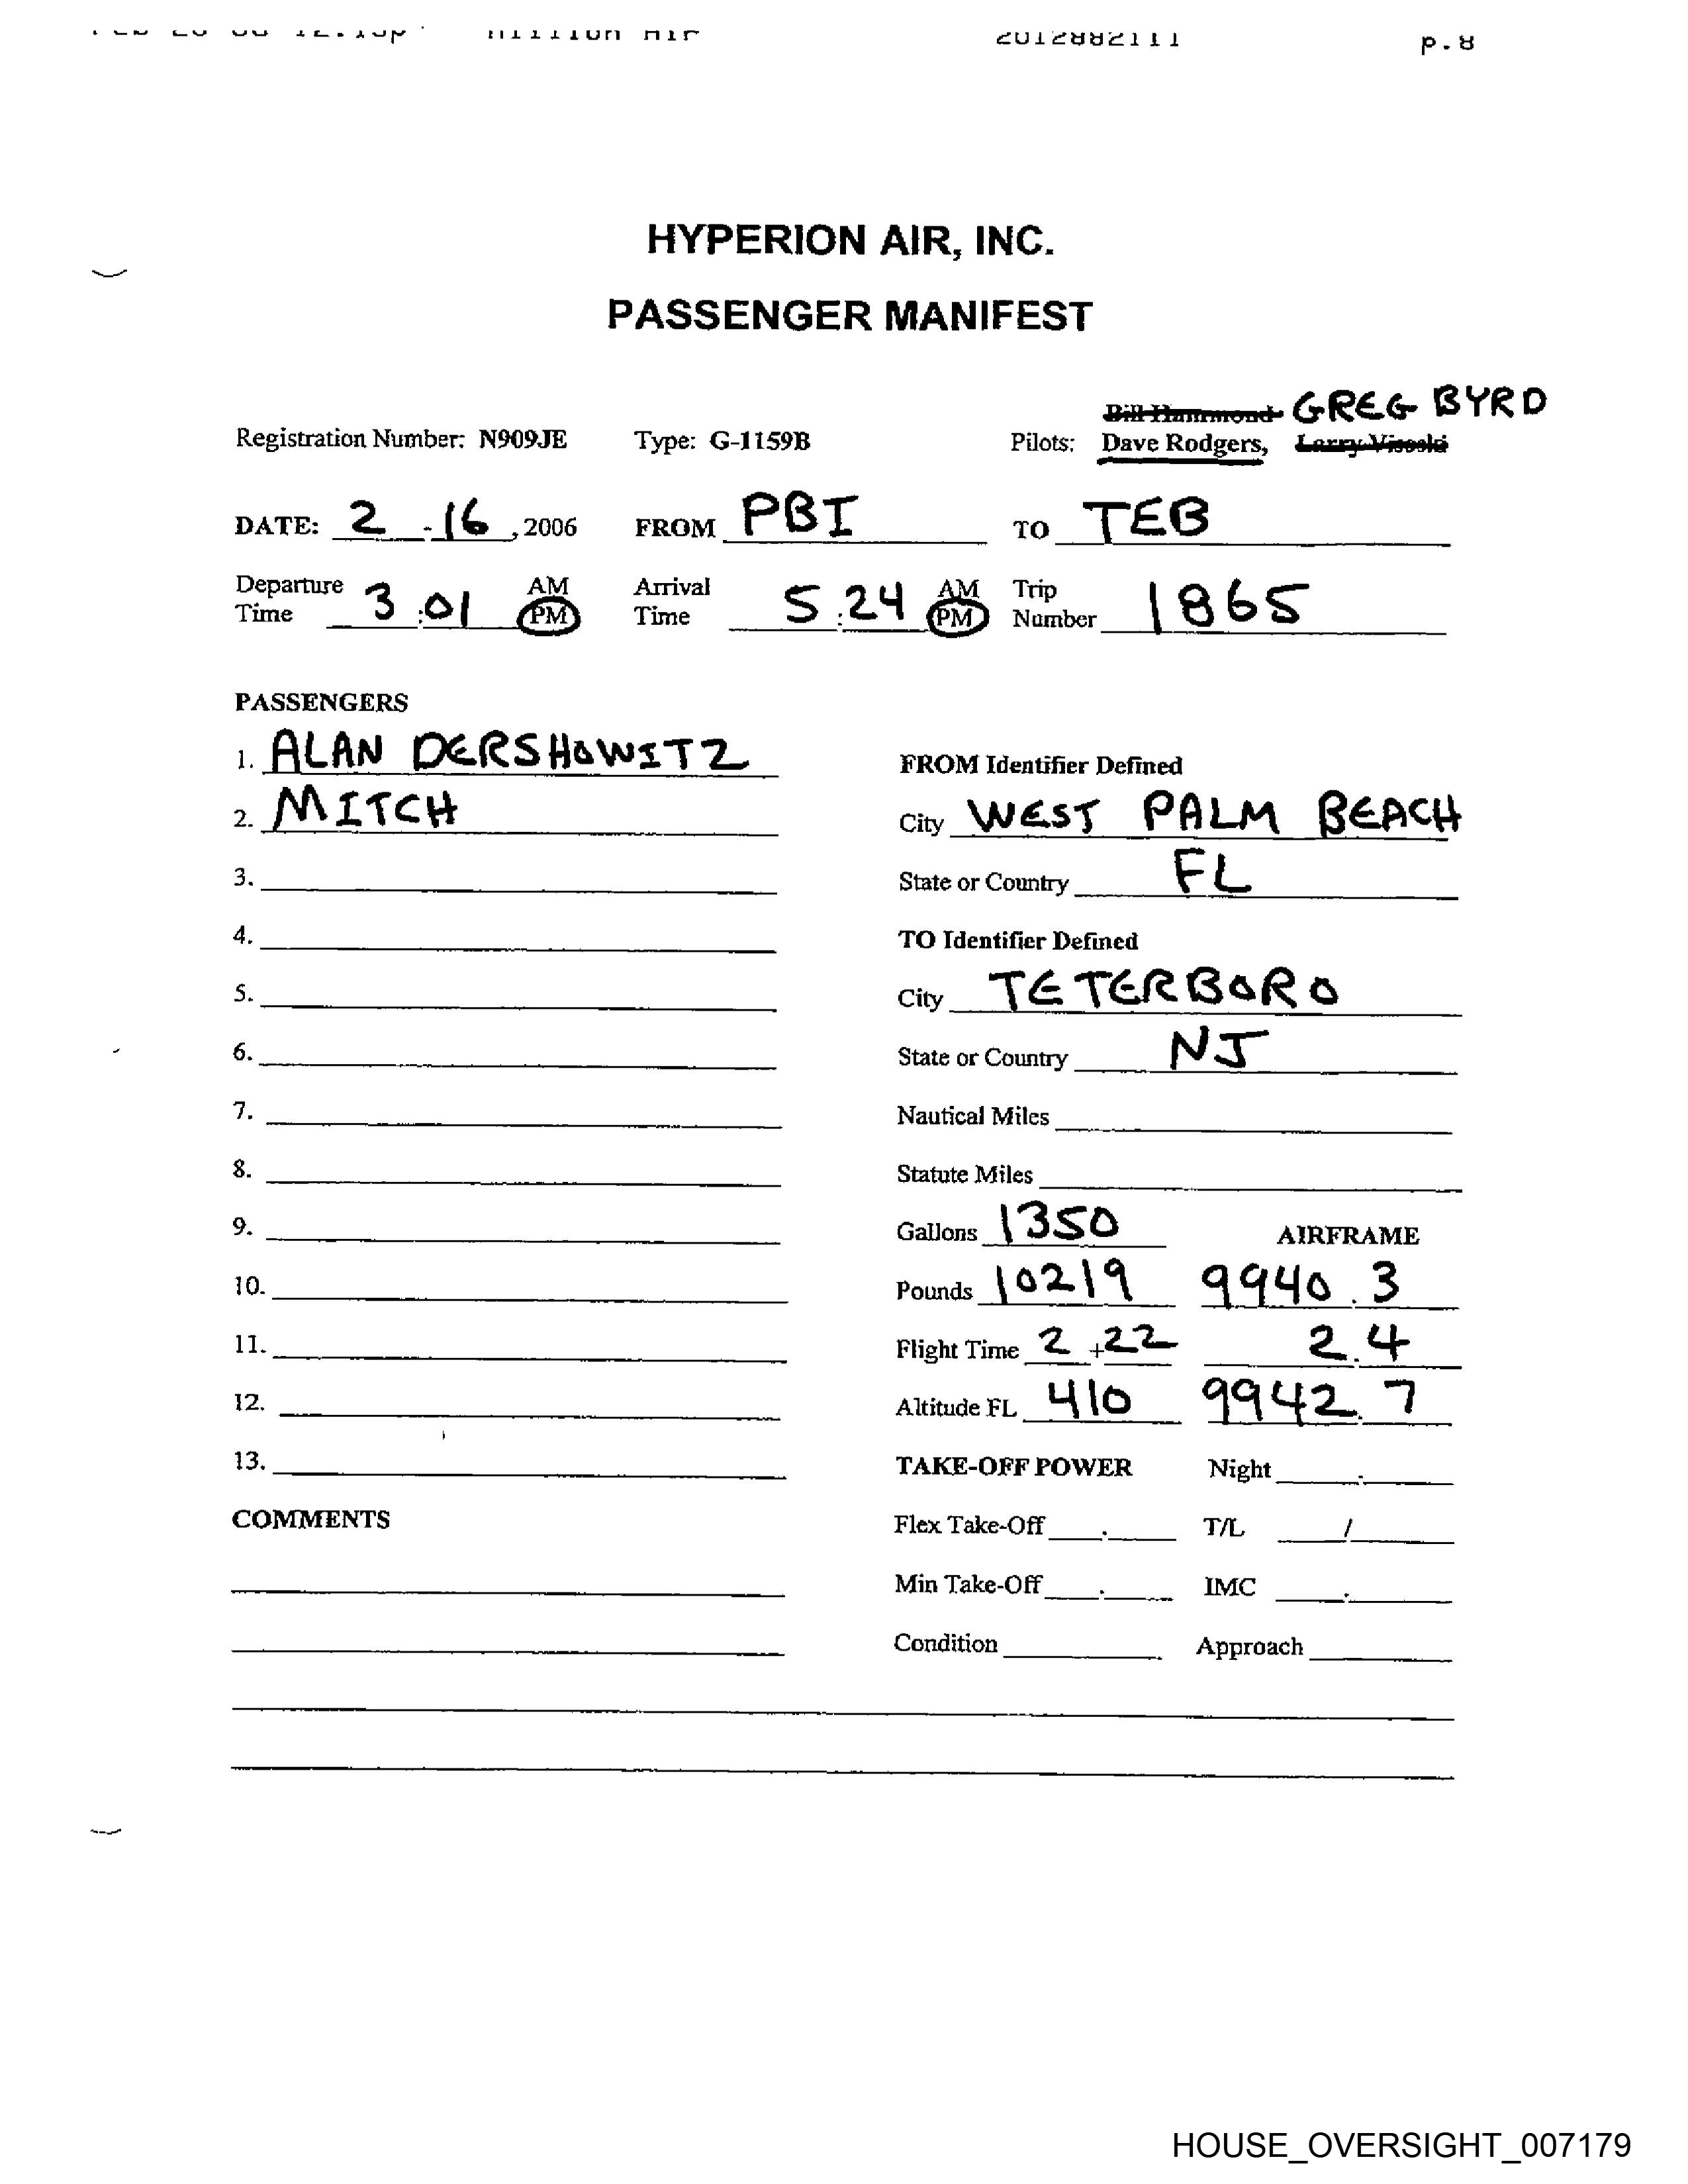 2012882111 p.8
HYPERION AIR, INC.
PASSENGER MANIFEST
Bill Hammond GREG BYRD
Registration Number: N909JE Type: G-1159B Pilots: Dave Rodgers, Larry Visoski
DATE: 2 - 16 , 2006 FROM PBI TO TEB
Departure Time 3:01 AM PM Arrival Time 5:24 AM PM Trip Number 1865
PASSENGERS
1. ALAN DERSHOWITZ
FROM Identifier Defined
2. MITCH
City WEST PALM BEACH
3.
State or Country FL
4.
TO Identifier Defined
5.
City TETERBORO
6.
State or Country NJ
7.
Nautical Miles
8.
Statute Miles
9.
Gallons 1350 AIRFRAME
10.
Pounds 10219 9940.3
11.
Flight Time 2+22 2.4
12.
Altitude FL 410 9942.7
13.
TAKE-OFF POWER Night
COMMENTS
Flex Take-Off T/L /
Min Take-Off IMC
Condition Approach
HOUSE_OVERSIGHT_007179